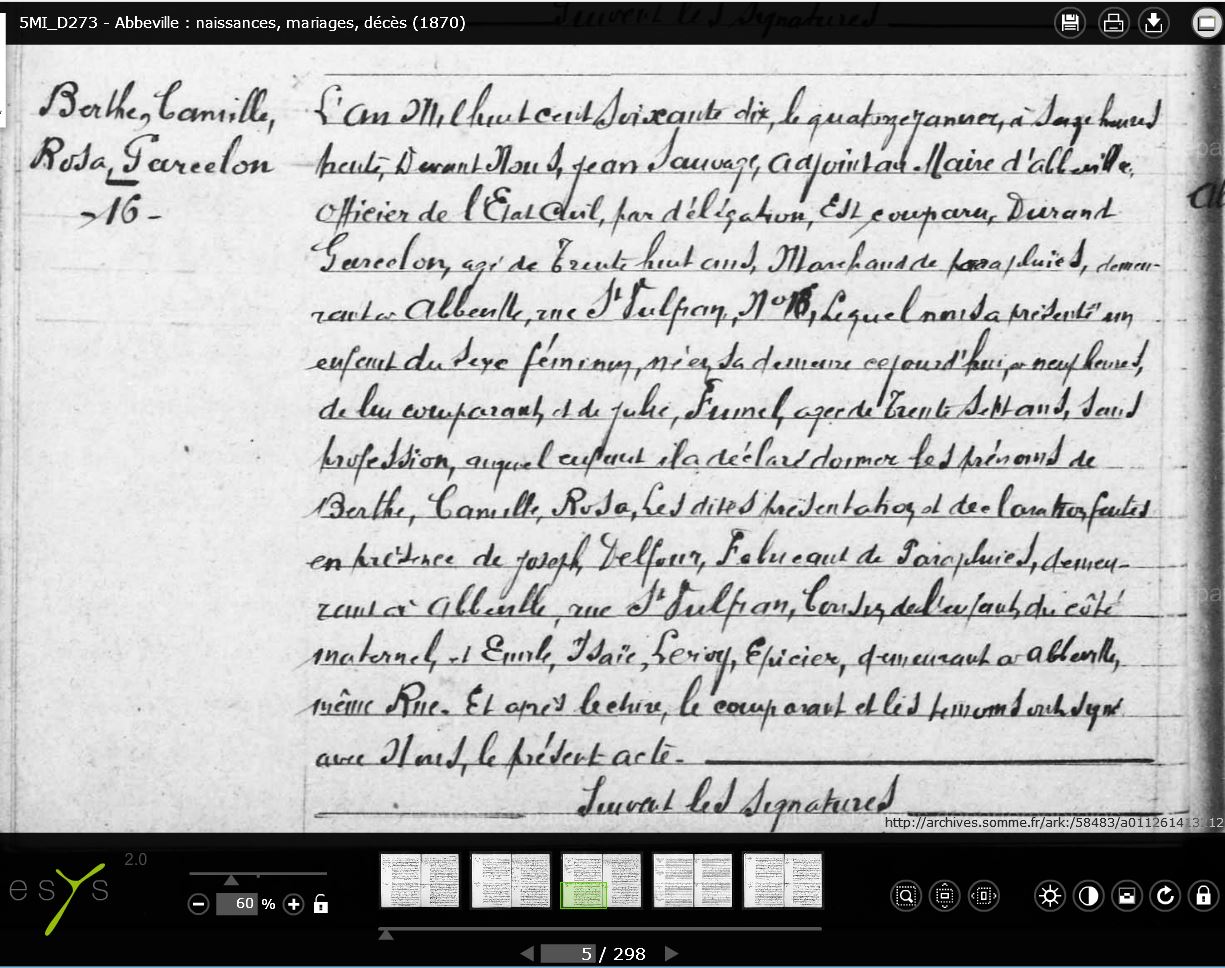 5MI_D273 - Abbeville : naissances, mariages, décès (1870)
Suivent les signatures
Berthe, Camille,
Rosa, Garcelon
16 -
L'an Mil huit cent Soixante dix, le quatorze janvier, à Seize heures
trente, Devant Nous, jean Sauvage, adjoint au Maire d'abbeville,
officier de l'Etat Civil, par délégation, Est, comparu, Durand
Garcelon, agé de Trente huit ans, Marchand de parapluies, demeu-
rant à Abbeville, rue St Vulfran, No 18, Lequel nous a présenté un
enfant du Sexe féminin, née en sa demeure cejourd'hui, à neuf heures,
de lui comparant, et de julie, Fumel, agée de Trente Sept ans, sans
profession, auquel enfant il a déclaré donner les prénoms de
Berthe, Camille, Rosa, Les dites présentation et déclaration faites
en présence de joseph, Delfour, Fabricant de Parapluies, demeu-
rant à Abbeville, rue St Vulfran, Cousin de l'enfant, du côté
maternel, et Emile, Isaïe, Leroy, Epicier, demeurant à abbeville,
même Rue. Et après lecture, le comparant et les témoins ont signé
avec Nous, le présent acte.
Suivent les signatures
http://archives.somme.fr/ark:/58483/a011261413
esys
2.0
60 %
5 / 298